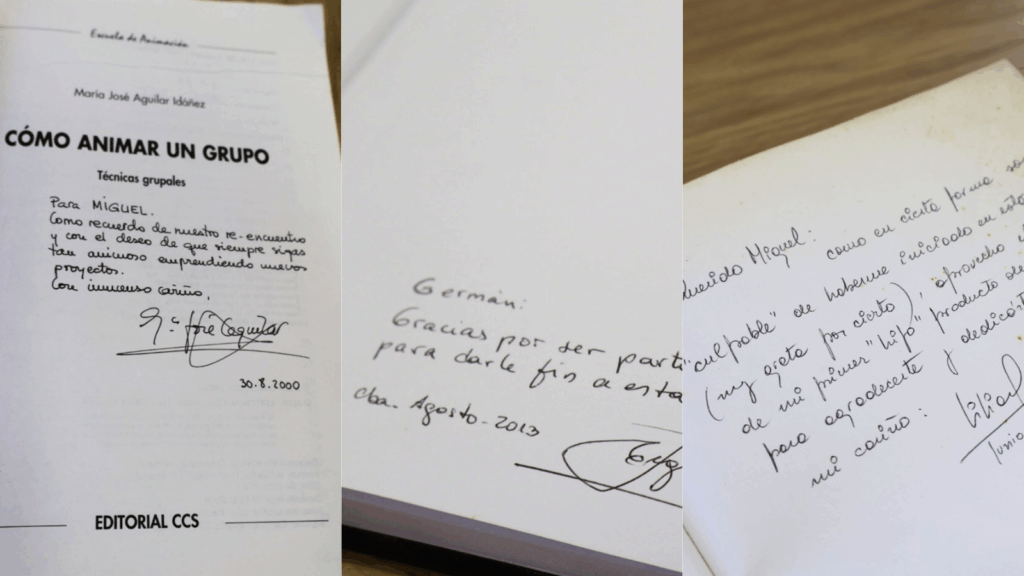 Escuela de Animación
María José Aguilar Idáñez
CÓMO ANIMAR UN GRUPO
Técnicas grupales
Para MIGUEL.
Como recuerdo de nuestro re-encuentro
y con el deseo de que siempre sigas
tan animoso emprendiendo nuevos
proyectos.
Con inmenso cariño,
Mª José Aguilar
30.8.2000
EDITORIAL CCS
Germán:
Gracias por ser parti
para darle fin a esta
cba. Agosto-2013
Querido Miguel: como en cierta forma so
"culpable" de haberme iniciado en esto
(muy grata por cierto), aprovecho
de mi primer "hijo" producto de
para agradecerte y dedicart
mi cariño: